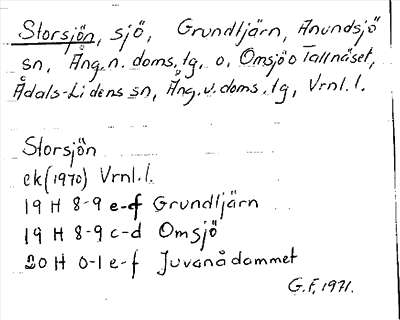 Storsjön, sjö, Grundtjärn, Anundsjö
sn, Ång.n. doms.tg, o. Omsjö o Tallnäset,
Ådals-Lidens sn, Ång.v.doms.tg, Vrnl.l.
Storsjön
ek(1970) Vrnl.l.
19 H 8-9 e-f Grundtjärn
19 H 8-9 c-d Omsjö
20 H 0-1 e-f Juvanådammet
G.F. 1971.